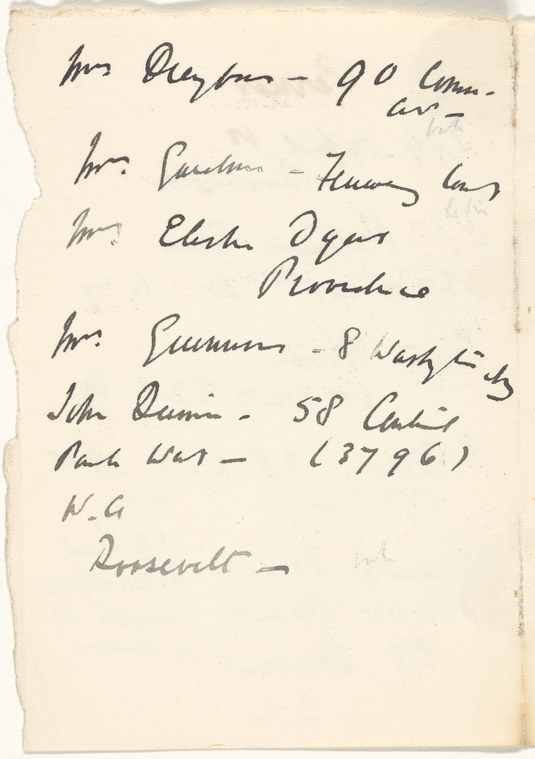 Mrs Dreyfus - 90 Comm.
av -
Mrs. Gardner - Fenway Court
Mrs Elisha Dyer
Providence
Mrs. - 8 Washington
John - 58 Central
Park West - (3796)
W. G
Roosevelt -